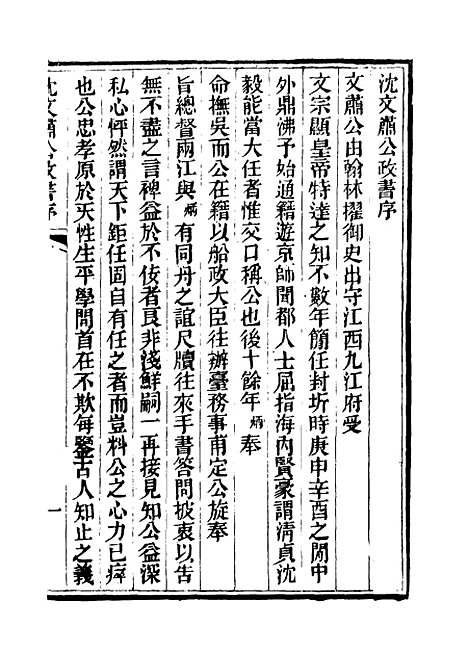 沈文肅公政書序
文肅公由翰林擢御史出守江西九江府受
文宗顯皇帝特達之知不數年簡任封圻時庚申辛酉之間中
外鼎沸予始通籍遊京師聞都人士屈指海內賢豪謂清貞沈
毅能當大任者惟交口稱公也後十餘年炳奉
命撫吳而公在籍以船政大臣往辦臺務事甫定公旋奉
旨總督兩江與炳有同舟之誼尺牘往來手書答問披衷以告
無不盡之言裨益於不佞者良非淺鮮嗣一再接見知公益深
私心怦然謂天下鉅任固自有任之者而豈料公之心力已瘁
也公忠孝原於天性生平學問首在不欺每鑒古人知止之義
沈文肅公政書序
一